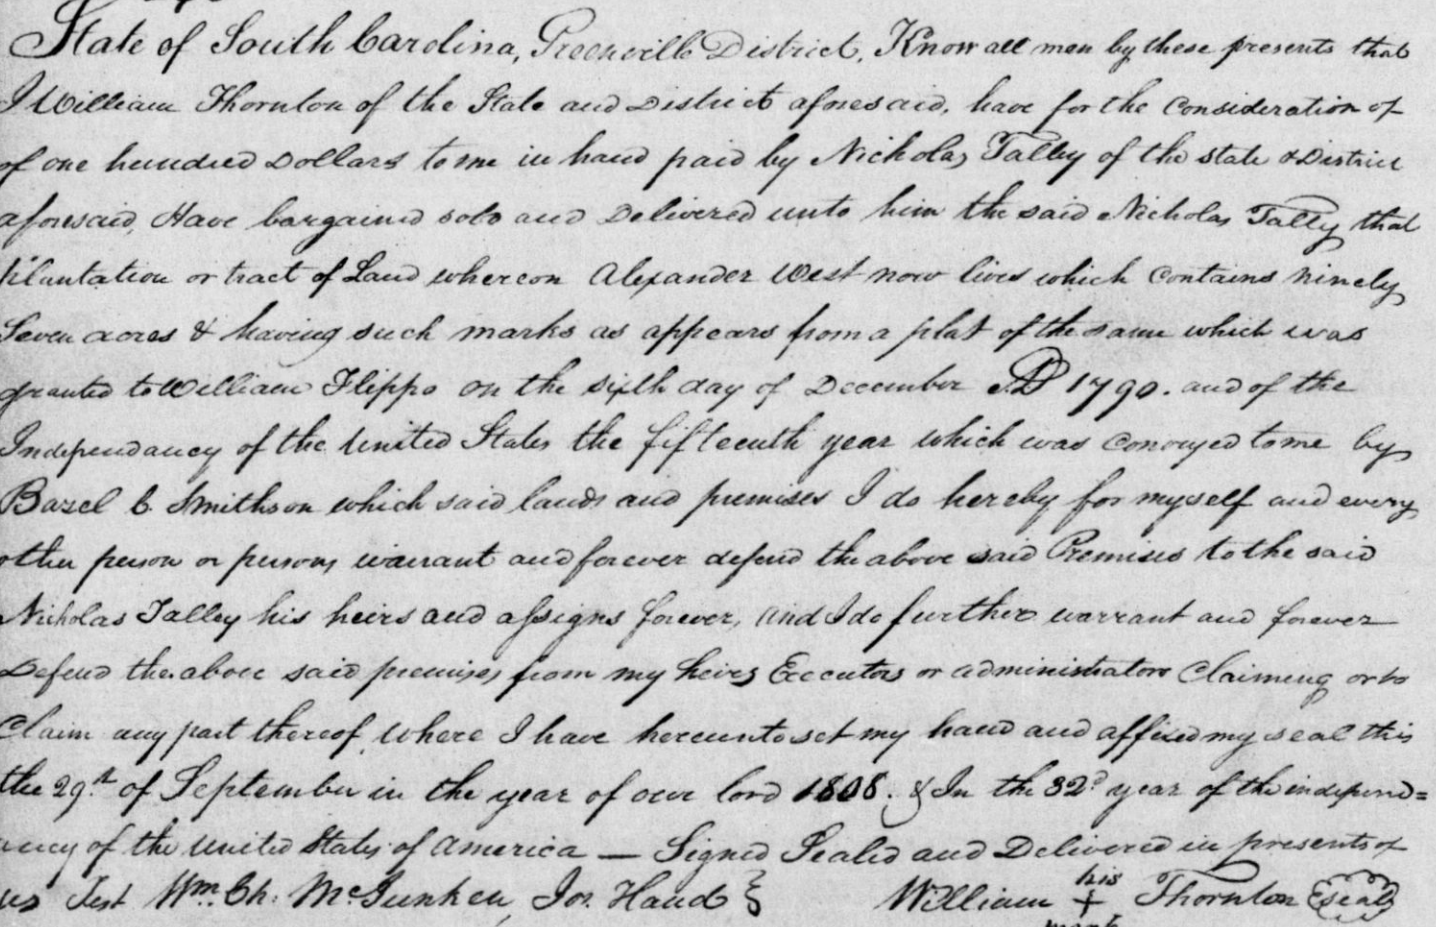 State of South Carolina, Greenville District, Know all men by these presents that
I William Thornton of the State and District aforesaid, have for the Consideration of
of one hundred Dollars to me in hand paid by Nicholas Talley of the state & District
aforesaid, Have bargained sold and Delivered unto him the said Nicholas Tally that
Plantation or tract of Land whereon Alexander West now lives which Contains ninely
Seven acres & having such marks as appears from a plat of the same which was
granted to William Flippo on the sixth day of December AD 1790. and of the
Independancy of the United States the fifteenth year which was Conveyed to me by
Bazel C. Smithson which said lands and premises I do hereby for myself and every
other person or persons warrant and forever defend the above said Premises to the said
Nicholas Talley his heirs and assigns forever, And I do further warrant and forever
Defend the above said premises from my heirs Executors or administrators Claiming or to
Claim any part thereof, where I have hereunto set my hand and affixed my seal this
the 29th of September in the year of our lord 1808. & In the 32d year of the independ=
ency of the United States of America — Signed Sealed and Delivered in presents of
us Test Wm. Ch. McJunken, Jos. Hand } William + Thornton seal
his
mark